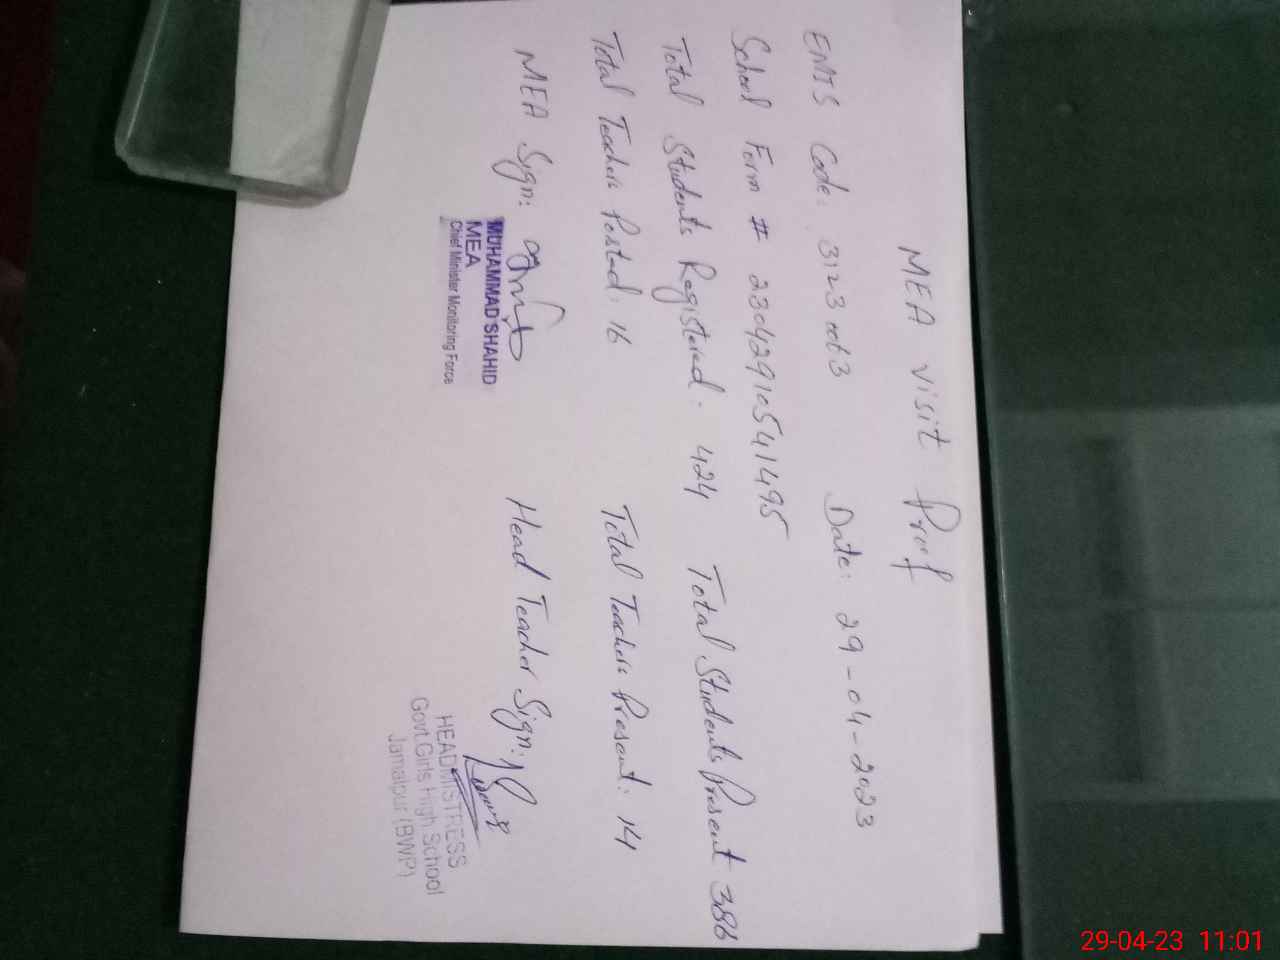 MEA visit Proof
EMIS Code: 3123 Date: 29-04-2023
School Form # 23042910541495
Total Students Registered: 424 Total Students Present 386
Total Teachers Posted: 16 Total Teachers Present: 14
MEA Sign: Head Teacher Sign:
MUHAMMAD SHAHID
MEA
Chief Minister Monitoring Force
HEADMISTRESS
Govt.Girls High School
Jamalpur (BWP)
29-04-23 11:01